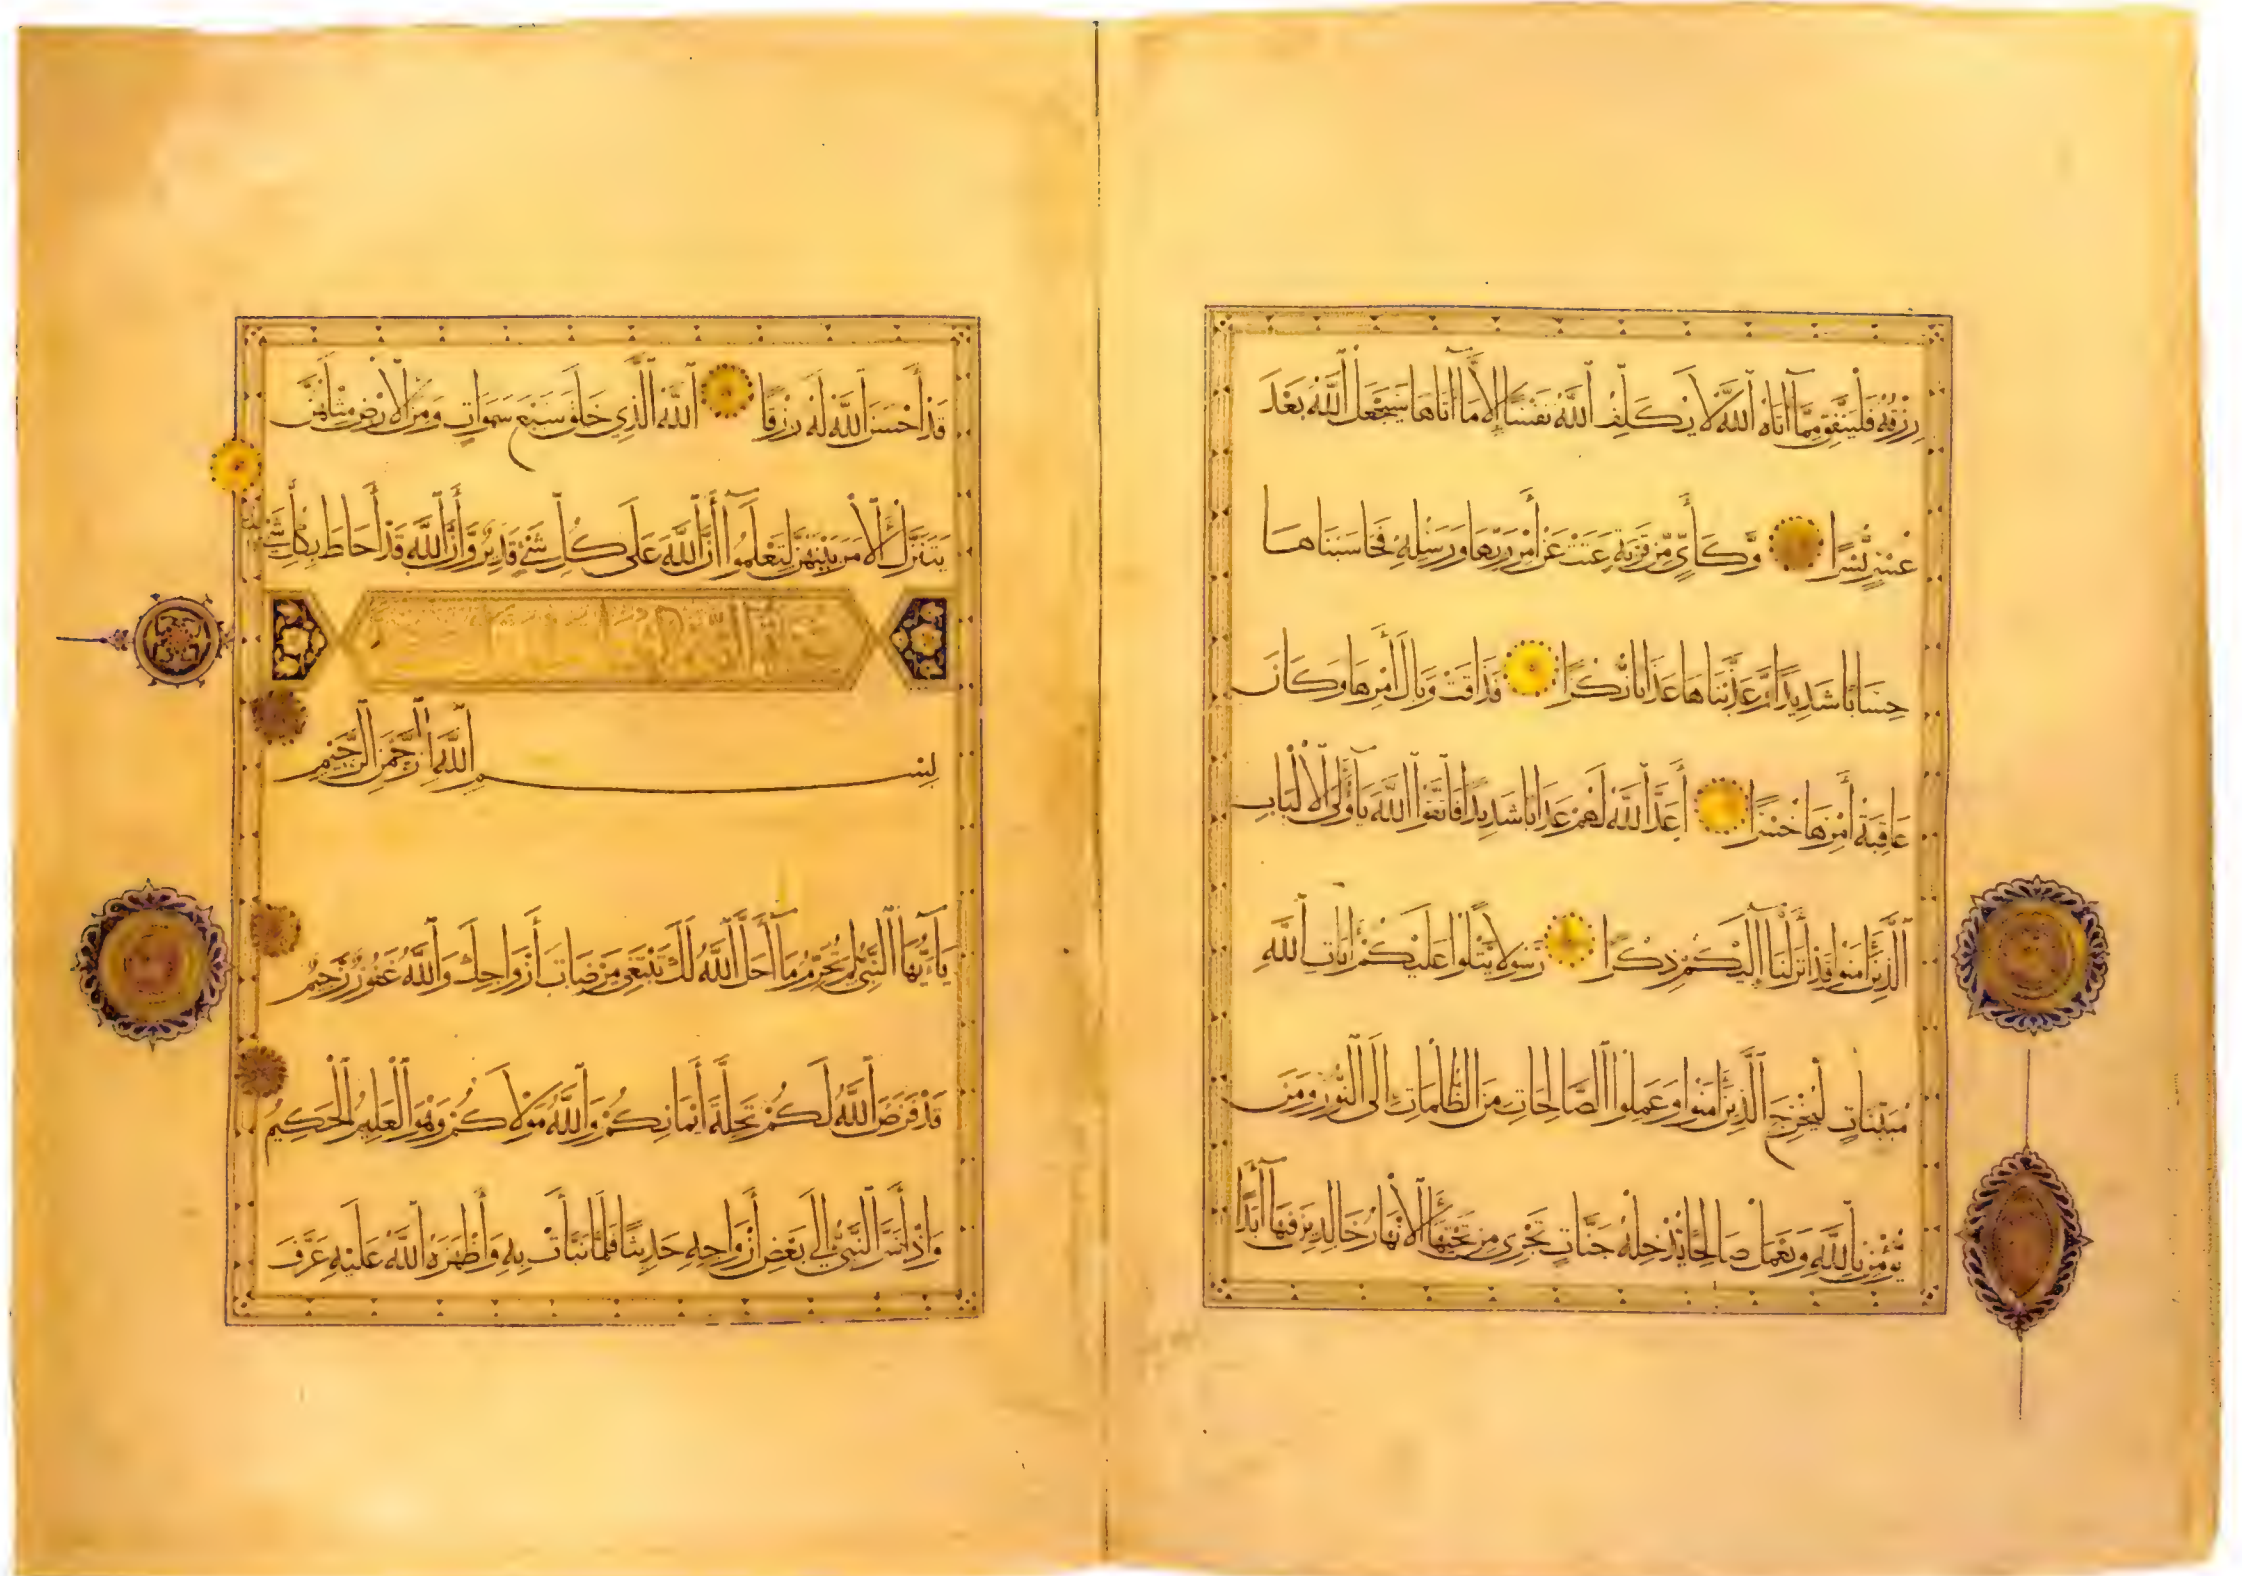 رِزْقُهُ فَلْيُنْفِقْ مِمَّا آتَاهُ اللَّهُ لَا يُكَلِّفُ اللَّهُ نَفْسًا إِلَّا مَا آتَاهَا سَيَجْعَلُ اللَّهُ بَعْدَ
عُسْرٍ يُسْرًا وَكَأَيِّنْ مِنْ قَرْيَةٍ عَتَتْ عَنْ أَمْرِ رَبِّهَا وَرُسُلِهِ فَحَاسَبْنَاهَا
حِسَابًا شَدِيدًا وَعَذَّبْنَاهَا عَذَابًا نُكْرًا فَذَاقَتْ وَبَالَ أَمْرِهَا وَكَانَ
عَاقِبَةُ أَمْرِهَا خُسْرًا أَعَدَّ اللَّهُ لَهُمْ عَذَابًا شَدِيدًا فَاتَّقُوا اللَّهَ يَا أُولِي الْأَلْبَابِ
الَّذِينَ آمَنُوا قَدْ أَنْزَلَ اللَّهُ إِلَيْكُمْ ذِكْرًا رَسُولًا يَتْلُوا عَلَيْكُمْ آيَاتِ اللَّهِ
مُبَيِّنَاتٍ لِيُخْرِجَ الَّذِينَ آمَنُوا وَعَمِلُوا الصَّالِحَاتِ مِنَ الظُّلُمَاتِ إِلَى النُّورِ وَمَنْ
يُؤْمِنْ بِاللَّهِ وَيَعْمَلْ صَالِحًا يُدْخِلْهُ جَنَّاتٍ تَجْرِي مِنْ تَحْتِهَا الْأَنْهَارُ خَالِدِينَ فِيهَا أَبَدًا
قَدْ أَحْسَنَ اللَّهُ لَهُ رِزْقًا اللَّهُ الَّذِي خَلَقَ سَبْعَ سَمَوَاتٍ وَمِنَ الْأَرْضِ مِثْلَهُنَّ
يَتَنَزَّلُ الْأَمْرُ بَيْنَهُنَّ لِتَعْلَمُوا أَنَّ اللَّهَ عَلَى كُلِّ شَيْءٍ قَدِيرٌ وَأَنَّ اللَّهَ قَدْ أَحَاطَ بِكُلِّ شَيْءٍ
بِسْمِ اللَّهِ الرَّحْمَنِ الرَّحِيمِ
يَا أَيُّهَا النَّبِيُّ لِمَ تُحَرِّمُ مَا أَحَلَّ اللَّهُ لَكَ تَبْتَغِي مَرْضَاتَ أَزْوَاجِكَ وَاللَّهُ غَفُورٌ رَحِيمٌ
قَدْ فَرَضَ اللَّهُ لَكُمْ تَحِلَّةَ أَيْمَانِكُمْ وَاللَّهُ مَوْلَاكُمْ وَهُوَ الْعَلِيمُ الْحَكِيمُ
وَإِذْ أَسَرَّ النَّبِيُّ إِلَى بَعْضِ أَزْوَاجِهِ حَدِيثًا فَلَمَّا نَبَّأَتْ بِهِ وَأَظْهَرَهُ اللَّهُ عَلَيْهِ عَرَّفَ